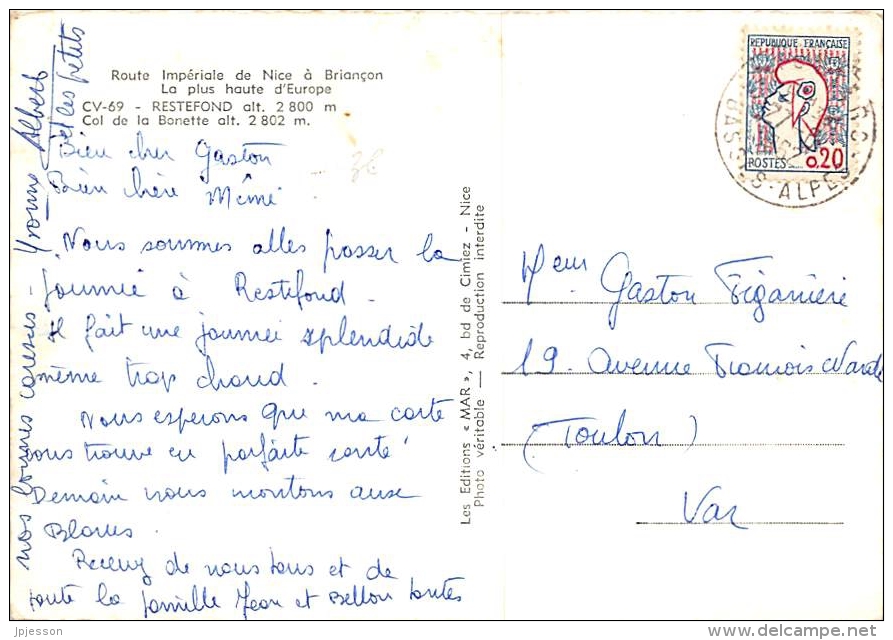 Route Impériale de Nice à Briançon
La plus haute d'Europe
CV-69 - RESTEFOND alt. 2 800 m
Col de la Bonette alt. 2 802 m.
Bien cher Gaston
Bien chère Mémé
Nous sommes allés passer la
journée à Restefond.
Il fait une journée splendide
même trop chaud.
Nous esperons que ma carte
vous trouve en parfaite santé
Demain nous montons aux
Recevez de nous tous et de
toute la famille Jean et Bellon toutes
nos bonnes caresses - Yvonne Albert
et les petits
Les Editions « MAR », 4, bd de Cimiez - Nice
Photo véritable — Reproduction interdite
REPUBLIQUE FRANÇAISE
POSTES 0,20
BASSES-ALPES
Gaston Figanière
19. Avenue
(Toulon)
Var
jpjesson
delcampe.net